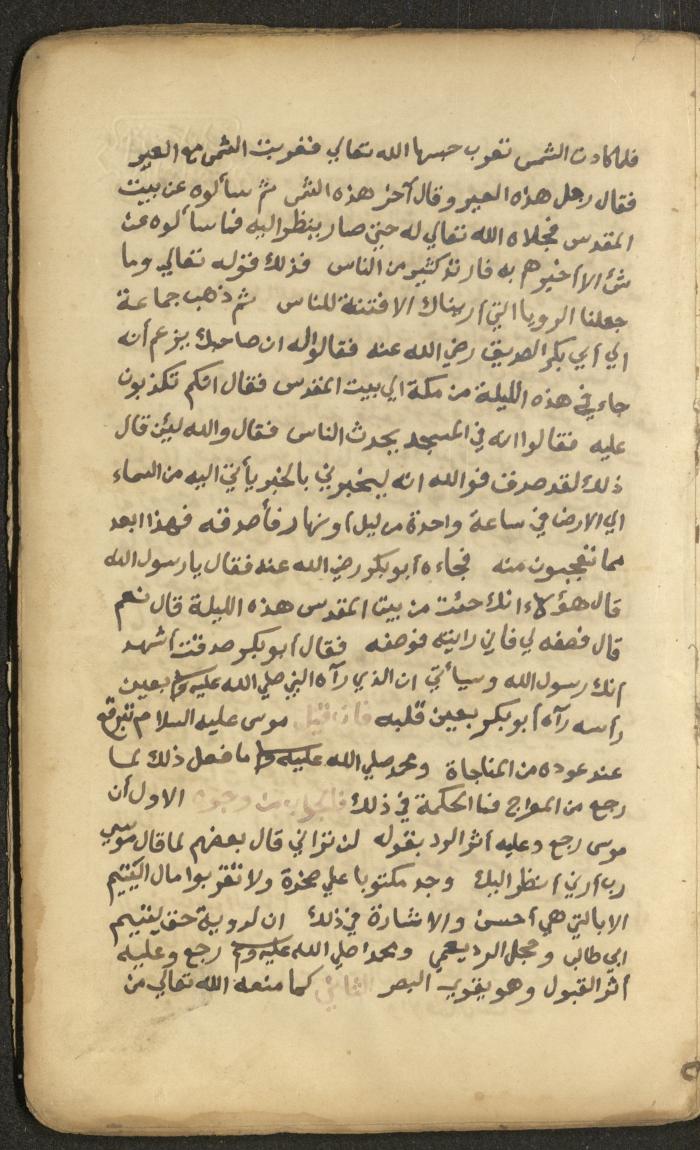 فلما كادت الشمس تغرب حبسها الله تعالي فغربت الشمس مع العير
فقال رجل هذه العير وقال آخر هذه الشمس ثم سألوه عن بيت
المقدس فجلاه الله تعالي له حتي صار ينظر اليه فما سألوه عن
شئ الا أخبرهم به فارتد كثير من الناس فذلك قوله تعالي وما
جعلنا الرويا التي أريناك الا فتنة للناس ثم ذهب جماعة
الي أبي بكر الصديق رضي الله عنه فقالوا له ان صاحبك يزعم أنه
جاء في هذه الليلة من مكة الي بيت المقدس فقال انكم تكذبون
عليه فقالوا انه في المسجد يحدث الناس فقال والله لئن قال
ذلك لقد صدق فوالله انه ليخبرني بالخبر يأتي اليه من السماء
الي الارض في ساعة واحدة من ليل أو نهار فأصدقه فهذا ابعد
مما تعجبون منه فجاءه أبو بكر رضي الله عنه فقال يا رسول الله
قال هؤلاء انك جئت من بيت المقدس هذه الليلة قال نعم
قال فصفه لي فاني رايته فوصفه فقال أبو بكر صدقت أشهد
أنك رسول الله وسيأتي ان الذي رآه النبي صلي الله عليه وسلم بعين
رأسه رآه أبو بكر بعين قلبه فان قيل موسى عليه السلام تبرقع
عند عوده من المناجاة ومحمد صلي الله عليه وسلم ما فعل ذلك لما
رجع من المعراج فما الحكمة في ذلك فالجواب من وجوه الاول أن
موسى رجع وعليه أثر الرد بقوله لن تراني قال بعضهم لما قال موسي
رب أرني أنظر اليك وجد مكتوبا علي صخرة ولا تقربوا مال اليتيم
الا بالتي هي أحسن والاشارة في ذلك ان لروية حق ليتيم
ابي طالب وخجل الرد يعمي ومحمدا صلي الله عليه وسلم رجع وعليه
أثر القبول وهو يقوي البصر الثاني كما منعه الله تعالي من